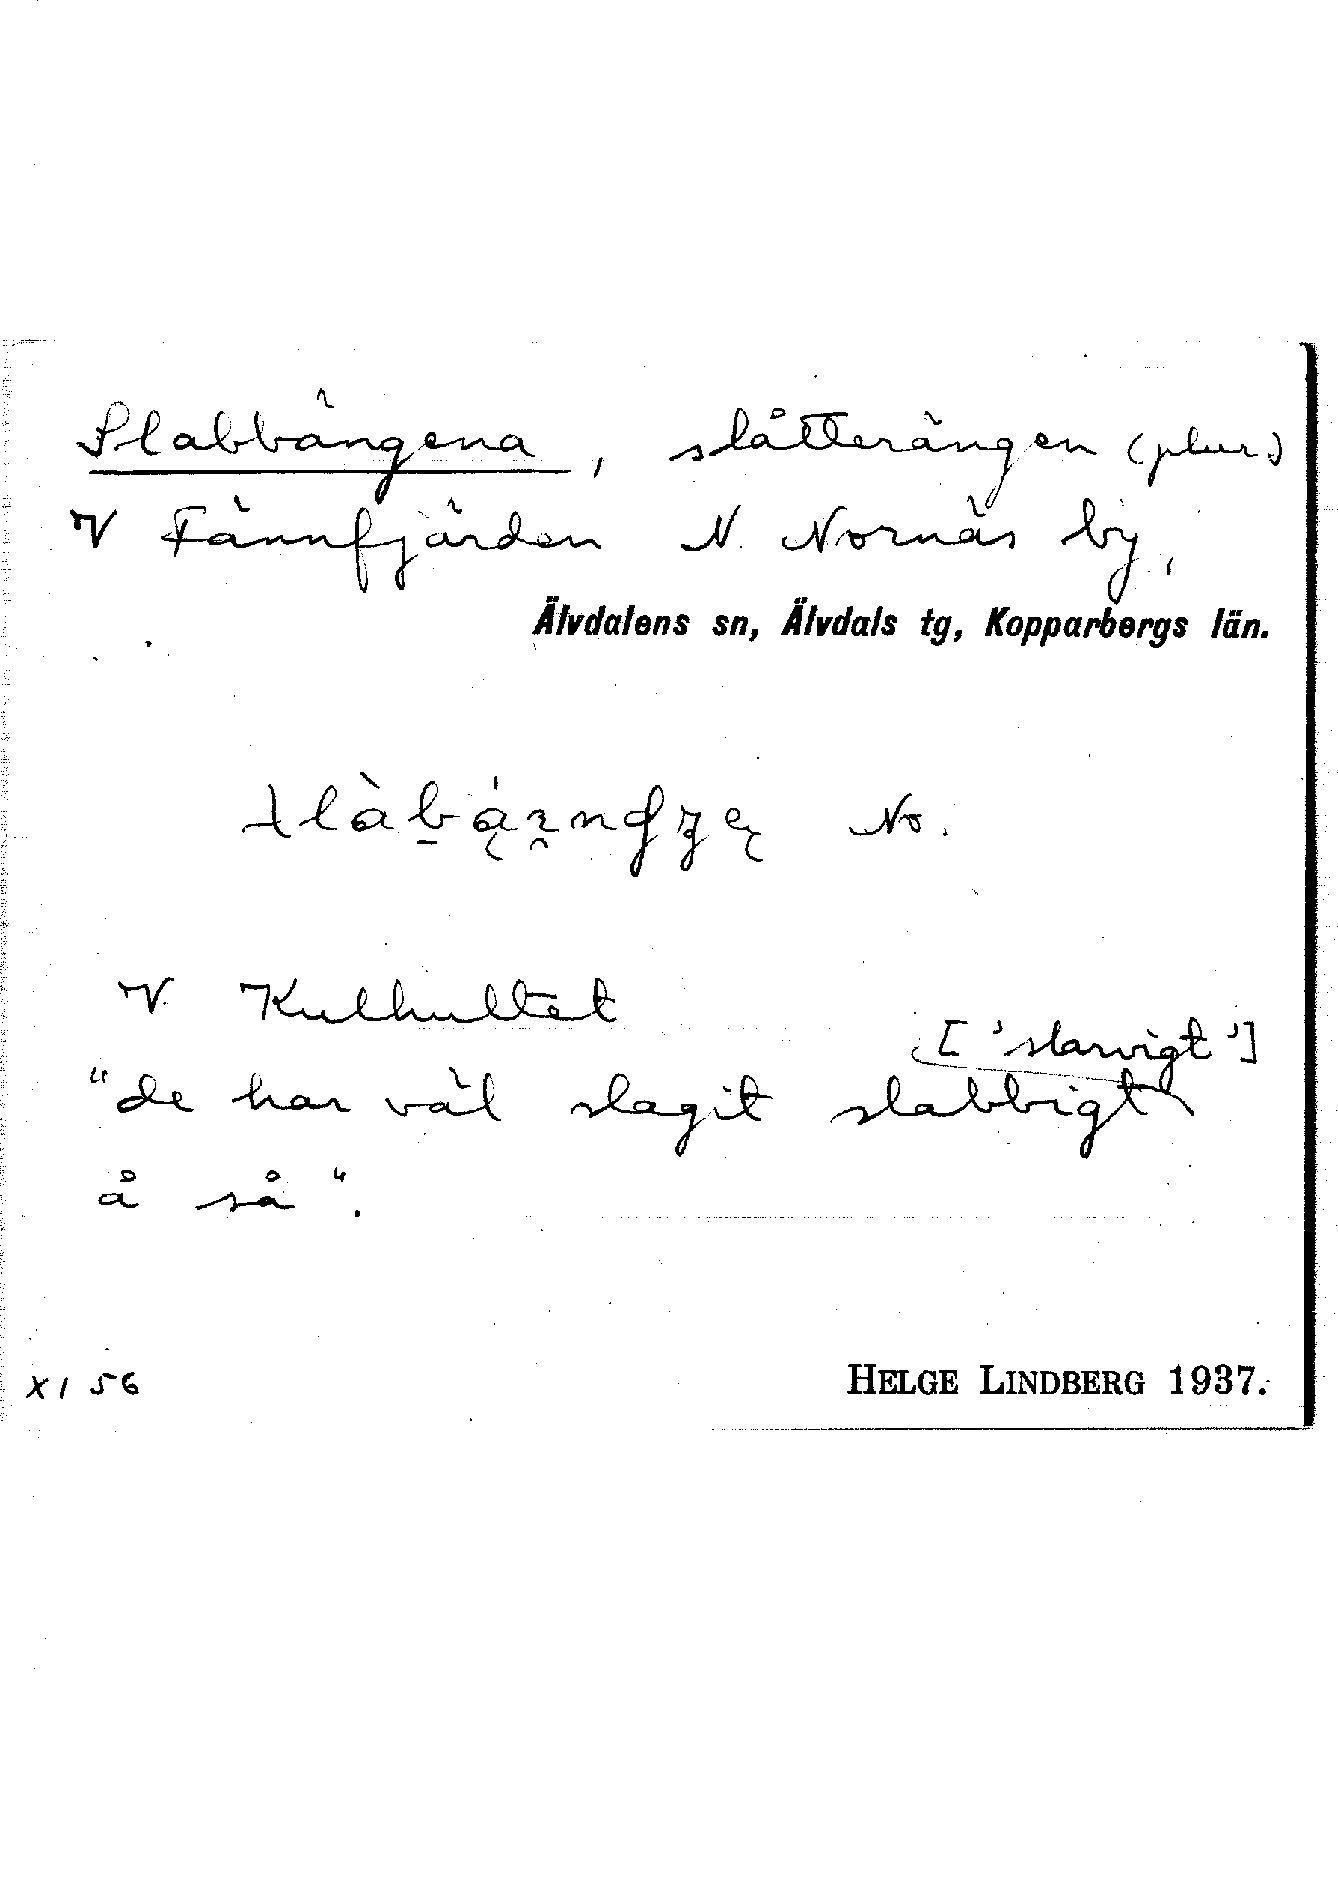 Slabbängena, slåtterängen (plur.)
V Fännfjärden N. Nornäs by,
Älvdalens sn, Älvdals tg, Kopparbergs län.
No.
V. Kulhultet
['slarvigt']
"de har väl slagit slabbigt
å så".
XI 56
HELGE LINDBERG 1937.